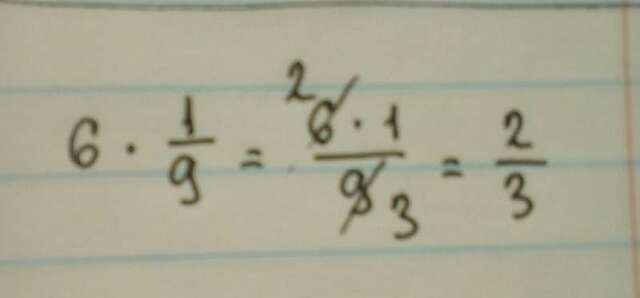 6 · 1/9 = 2 6 · 1 / 9 3 = 2/3